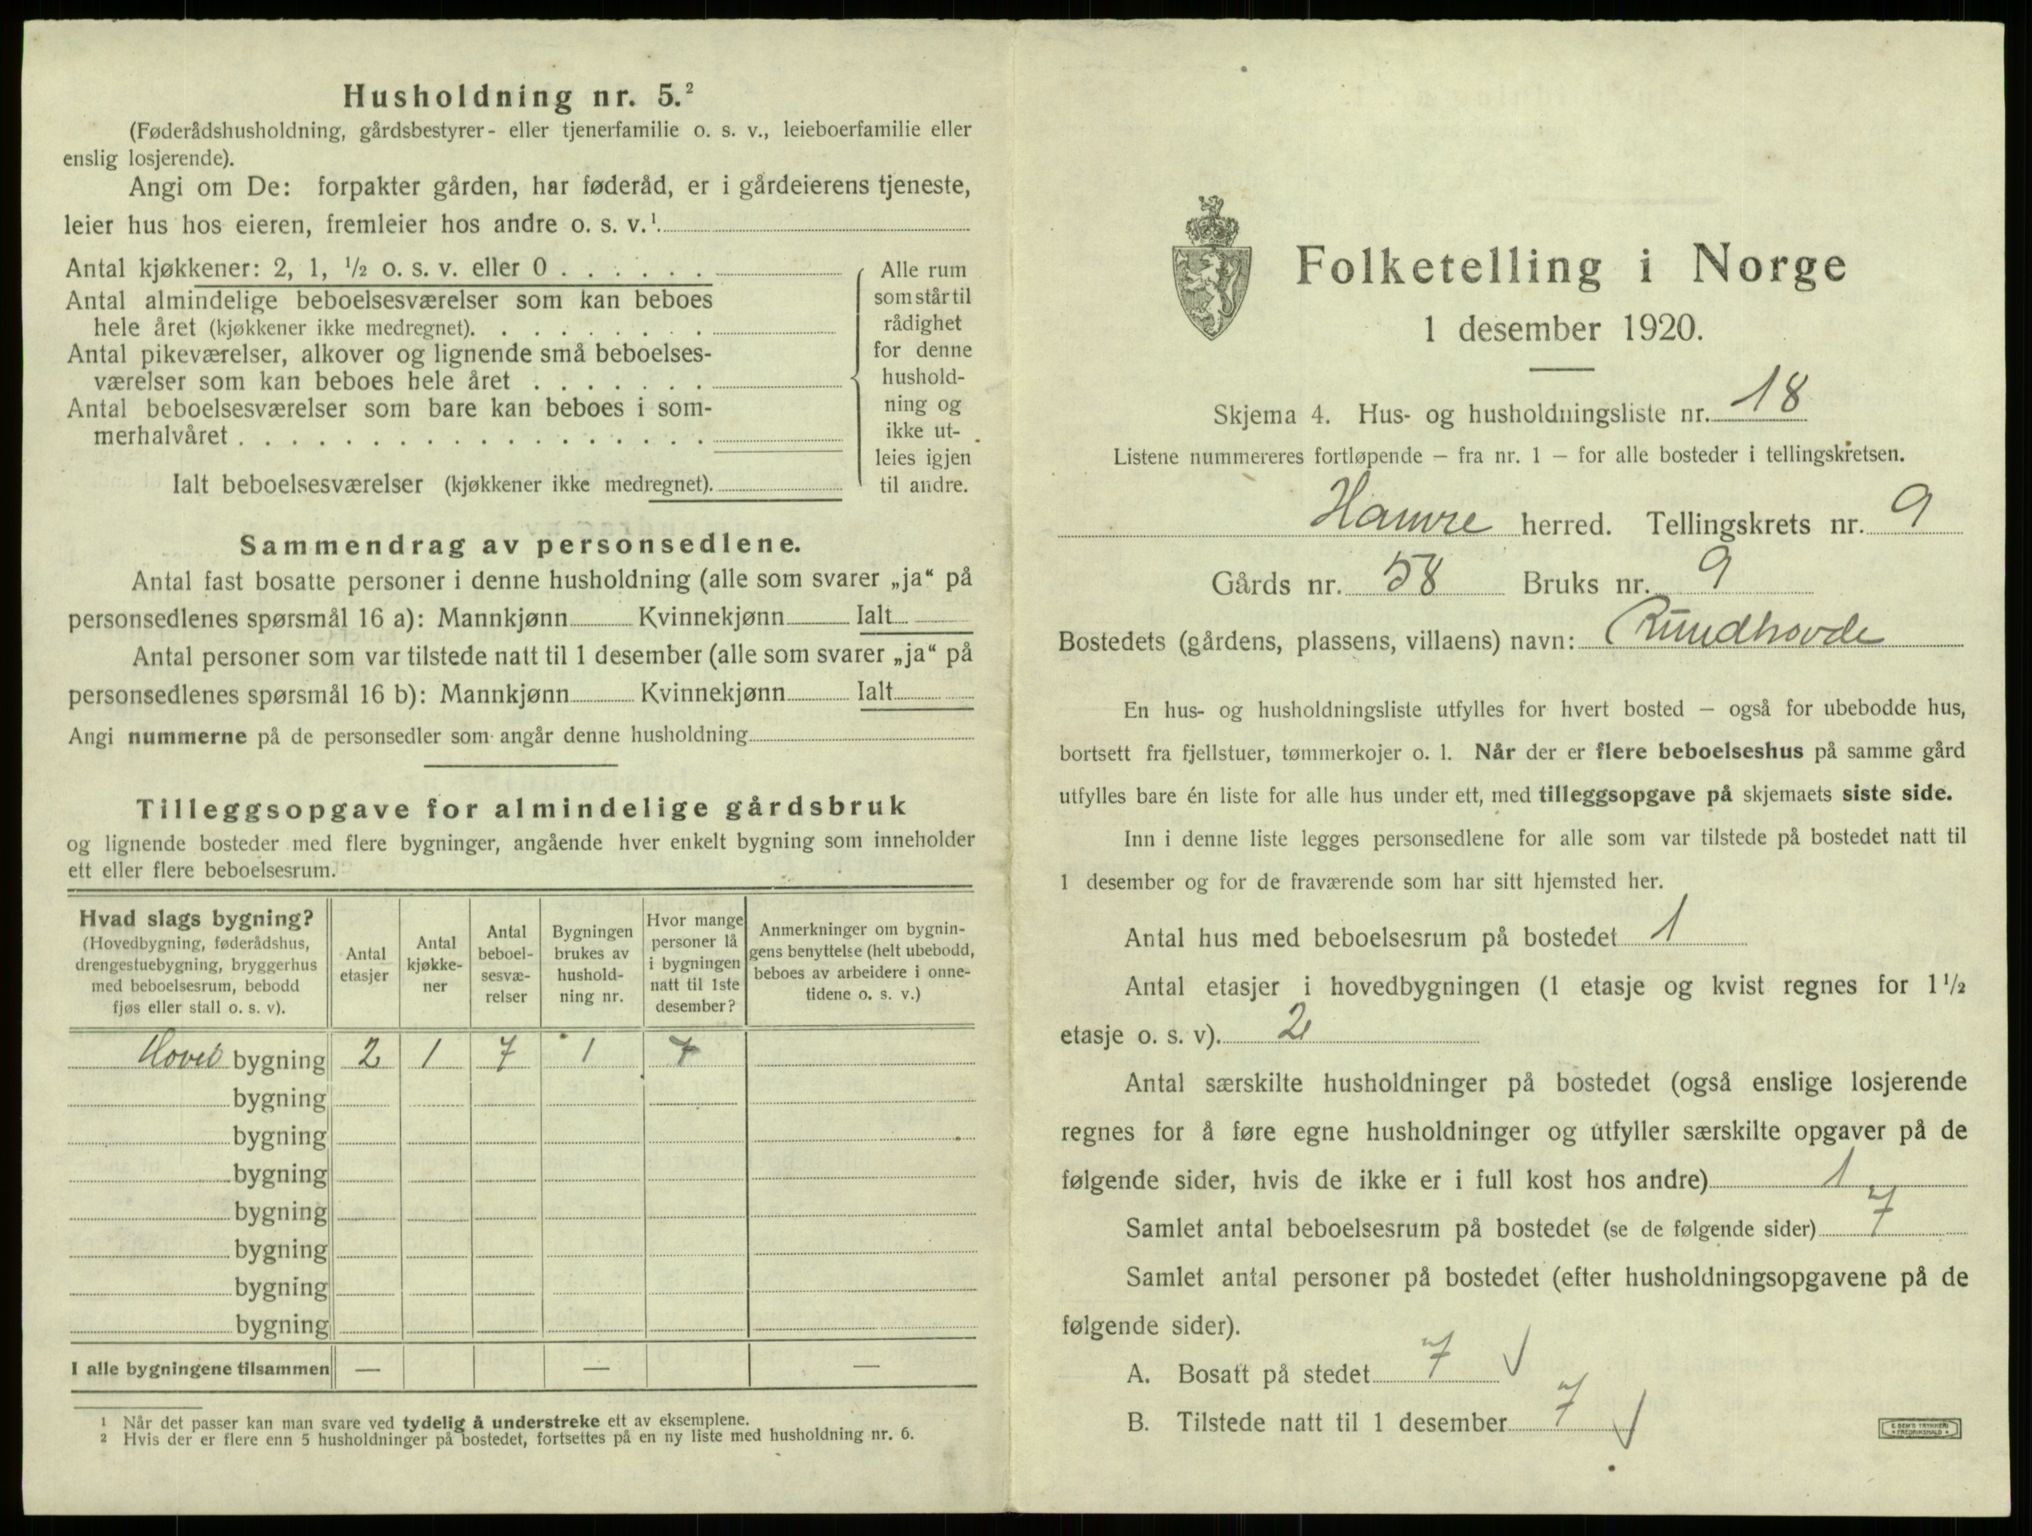 Husholdning nr. 5.²
(Føderådshusholdning, gårdsbestyrer- eller tjenerfamilie o. s. v., leieboerfamilie eller
enslig losjerende).
Angi om De: forpakter gården, har føderåd, er i gårdeierens tjeneste,
leier hus hos eieren, fremleier hos andre o. s. v.¹
Antal kjøkkener: 2, 1, ½ o. s. v. eller 0 . . . . . .
Antal almindelige beboelsesværelser som kan beboes
hele året (kjøkkener ikke medregnet). . . . . . . . .
Antal pikeværelser, alkover og lignende små beboelses-
værelser som kan beboes hele året . . . . . . .
Antal beboelsesværelser som bare kan beboes i som-
merhalvåret . . . . . . . . . . . . . . . . . .
Ialt beboelsesværelser (kjøkkener ikke medregnet).
Alle rum
som står til
rådighet
for denne
hushold-
ning og
ikke ut-
leies igjen
til andre.
Sammendrag av personsedlene.
Antal fast bosatte personer i denne husholdning (alle som svarer „ja“ på
personsedlenes spørsmål 16 a): Mannkjønn Kvinnekjønn Ialt
Antal personer som var tilstede natt til 1 desember (alle som svarer „ja“ på
personsedlenes spørsmål 16 b): Mannkjønn Kvinnekjønn Ialt
Angi nummerne på de personsedler som angår denne husholdning
Tilleggsopgave for almindelige gårdsbruk
og lignende bosteder med flere bygninger, angående hver enkelt bygning som inneholder
ett eller flere beboelsesrum.
Hvad slags bygning?
(Hovedbygning, føderådshus,
drengestuebygning, bryggerhus
med beboelsesrum, bebodd
fjøs eller stall o. s. v).
Antal
etasjer
Antal
kjøkke-
ner
Antal
beboel-
sesvæ-
relser
Bygningen
brukes av
hushold-
ning nr.
Hvor mange
personer lå
i bygningen
natt til 1ste
desember?
Anmerkninger om bygnin-
gens benyttelse (helt ubebodd,
beboes av arbeidere i onne-
tidene o. s. v.)
Hoved bygning 2 1 7 1 7
bygning
bygning
bygning
bygning
bygning
bygning
bygning
I alle bygningene tilsammen — — —
¹ Når det passer kan man svare ved tydelig å understreke ett av eksemplene.
² Hvis der er flere enn 5 husholdninger på bostedet, fortsettes på en ny liste med husholdning nr. 6.
Folketelling i Norge
1 desember 1920.
Skjema 4. Hus- og husholdningsliste nr. 18
Listene nummereres fortløpende – fra nr. 1 – for alle bosteder i tellingskretsen.
Hamre herred. Tellingskrets nr. 9
Gårds nr. 58 Bruks nr. 9
Bostedets (gårdens, plassens, villaens) navn: Rundhovde
En hus- og husholdningsliste utfylles for hvert bosted – også for ubebodde hus,
bortsett fra fjellstuer, tømmerkojer o. l. Når der er flere beboelseshus på samme gård
utfylles bare én liste for alle hus under ett, med tilleggsopgave på skjemaets siste side.
Inn i denne liste legges personsedlene for alle som var tilstede på bostedet natt til
1 desember og for de fraværende som har sitt hjemsted her.
Antal hus med beboelsesrum på bostedet 1
Antal etasjer i hovedbygningen (1 etasje og kvist regnes for 1½
etasje o. s. v). 2
Antal særskilte husholdninger på bostedet (også enslige losjerende
regnes for å føre egne husholdninger og utfyller særskilte opgaver på de
følgende sider, hvis de ikke er i full kost hos andre) 1
Samlet antal beboelsesrum på bostedet (se de følgende sider) 7
Samlet antal personer på bostedet (efter husholdningsopgavene på de
følgende sider).
A. Bosatt på stedet 7 √
B. Tilstede natt til 1 desember 7 √
E. SEM'S TRYKKERI
FREDRIKSHALD